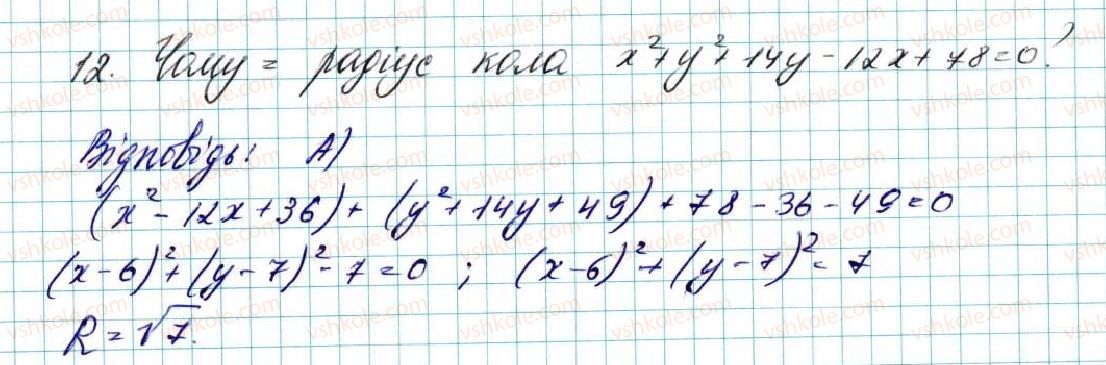 12. Чому = радіус кола x²+y²+14y-12x+78=0?
Відповідь: А)
(x²-12x+36)+(y²+14y+49)+78-36-49=0
(x-6)²+(y-7)²-7=0 ; (x-6)²+(y-7)²=7
R=√7.